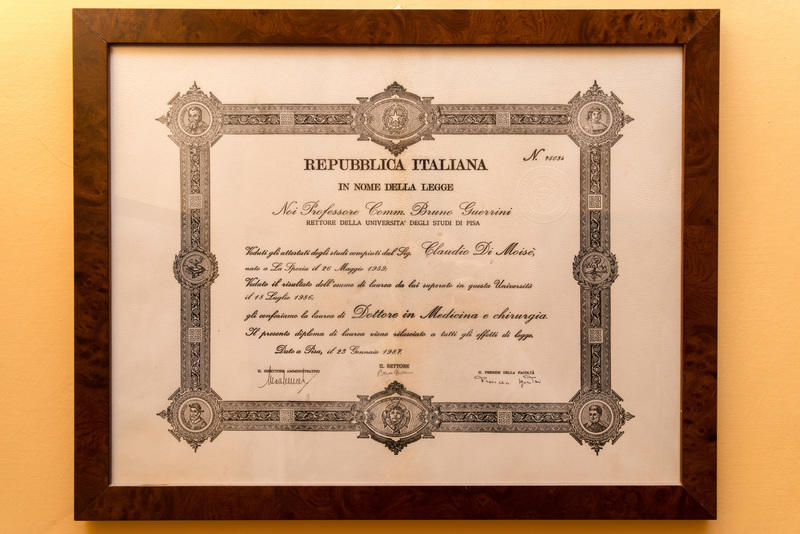 REPUBBLICA ITALIANA
N. 25034
IN NOME DELLA LEGGE
Noi Professore Comm. Bruno Guerrini
RETTORE DELLA UNIVERSITA' DEGLI STUDI DI PISA
Veduti gli attestati degli studi compiuti dal Sig. Claudio Di Moisè,
nato a La Spezia il 26 Maggio 1959;
Veduto il risultato dell'esame di laurea da lui superato in questa Università
il 18 Luglio 1986;
gli conferiamo la laurea di Dottore in Medicina e chirurgia.
Il presente diploma di laurea viene rilasciato a tutti gli effetti di legge.
Dato a Pisa, il 23 Gennaio 1987.
IL DIRETTORE AMMINISTRATIVO
IL RETTORE
IL PRESIDE DELLA FACOLTÀ